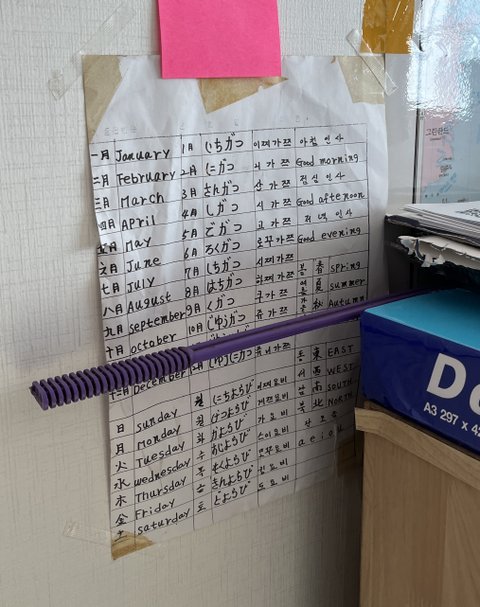 一月 January 1月 いちがつ 이찌가쯔 아침 인사
二月 February 2月 にがつ 니가쯔 Good morning
三月 March 3月 さんがつ 산가쯔 점심 인사
四月 April 4月 しがつ 시가쯔 Good afternoon
五月 May 5月 ごがつ 고가쯔 저녁 인사
六月 June 6月 ろくがつ 로꾸가쯔 Good evening
七月 July 7月 しちがつ 시찌가쯔
八月 August 8月 はちがつ 하찌가쯔 봄 春 spring
九月 september 9月 くがつ 구가쯔 여름 夏 summer
十月 october 10月 가을 秋 Autumn
十二月 December 동 東 EAST
서 西 WEST
日 sunday 일 にちようび 이찌요비 남 南 SOUTH
月 Monday 월 げつようび 북 北 NORTH
火 Tuesday 화 かようび 가요비
水 wednesday 수 すいようび 스이요비 a e i o u
木 Thursday 목 もくようび 모꾸요비
金 Friday 금 きんようび 긴요비
土 saturday 토 どようび 도요비
A3 297 x 42